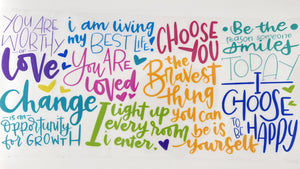 YOU ARE
WORTHY
OF
Love
i am living
my BEST LIFE!
YOU ARE
loved
CHOOSE
YOU
Be the
reason someone
smiles
TODAY
Change
is an
Opportunity
for GROWTH
I light up
every room
i enter.
the
Bravest
thing
you can
be is
yourself
I
CHOOSE
TO BE
HAPPY